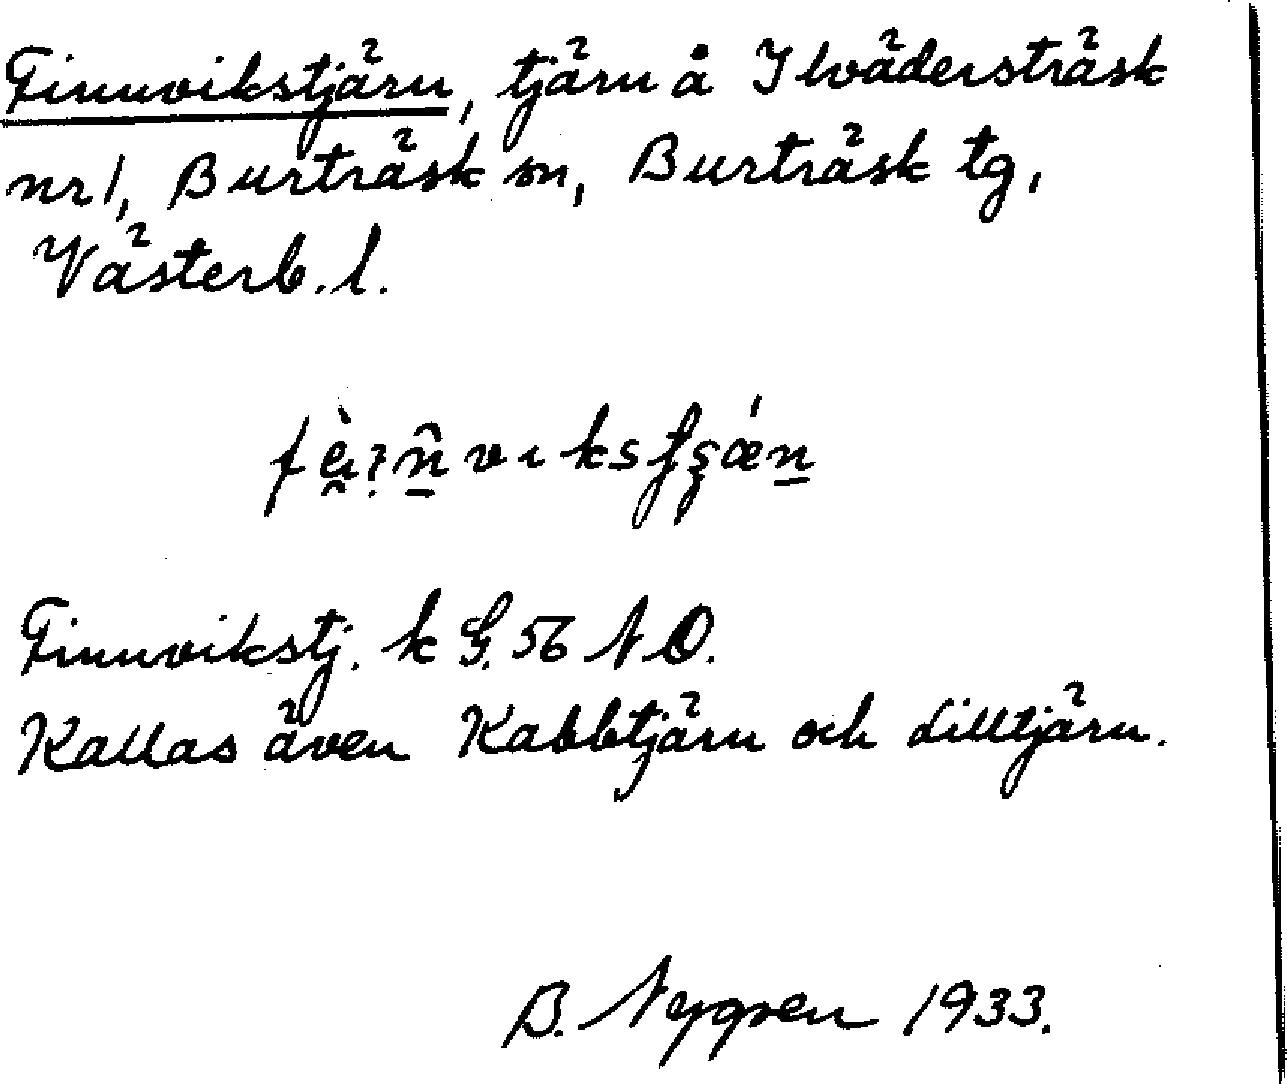 Finnvikstjärn, tjärn å Ilvädersträsk
nr 1, Burträsk sn, Burträsk tg,
Västerb. l.
Finnvikstj. k G. 56 N O.
Kallas även Kabbtjärn och Lilltjärn.
B. Nygren 1933.